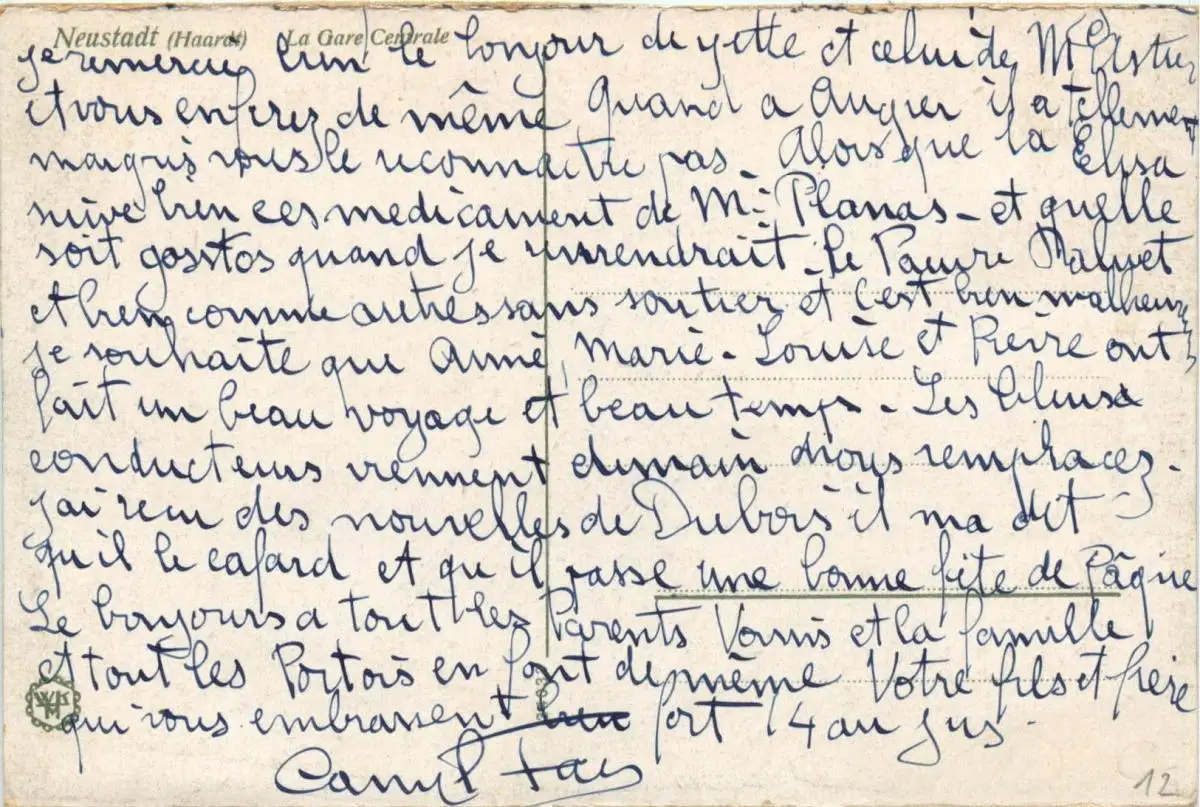 Neustadt (Haardt) La Gare Centrale
je remercie bien le bonjour de yette et celui de Mr
et vous en ferez de même Quand a Augier il a tellement
maigris vous le reconnaitre pas. Alors que la Elisa
suive bien ces medicament de Mr Planas - et quelle
soit quand je - Le Pauvre
et bien comme autres sans soutier et c'est bien malheureux
je souhaite que Aimé, Marie-Louise et Pierre ont
fait un beau voyage et beau temps - Les bleus
conducteurs viennent demain nous remplacez.
j'ai recu des nouvelles de Dubois il ma dit
qu'il le cafard et qu'il passe une bonne fête de Pâque
Le bonjours a tout les Parents Voisins et la famille
et tout les Portois en font de même Votre fils et frère
qui vous embrassent fort 14 au jus.
12